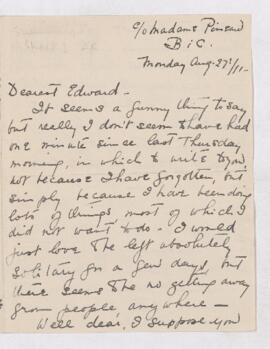 c/o Madame Pineau
Bic.
Monday Aug. 27/11-
Dearest Edward -
It seems a funny thing to say
but really I don't seem to have had
one minute since last Thursday
morning, in which to write to you
not because I have forgotten, but
simply because I have been doing
lots of things, most of which I
did not want to do - I would
just love to be left absolutely
solitary for a few days, but
there seems to be no getting away
from people anywhere -
Well dear, I suppose you